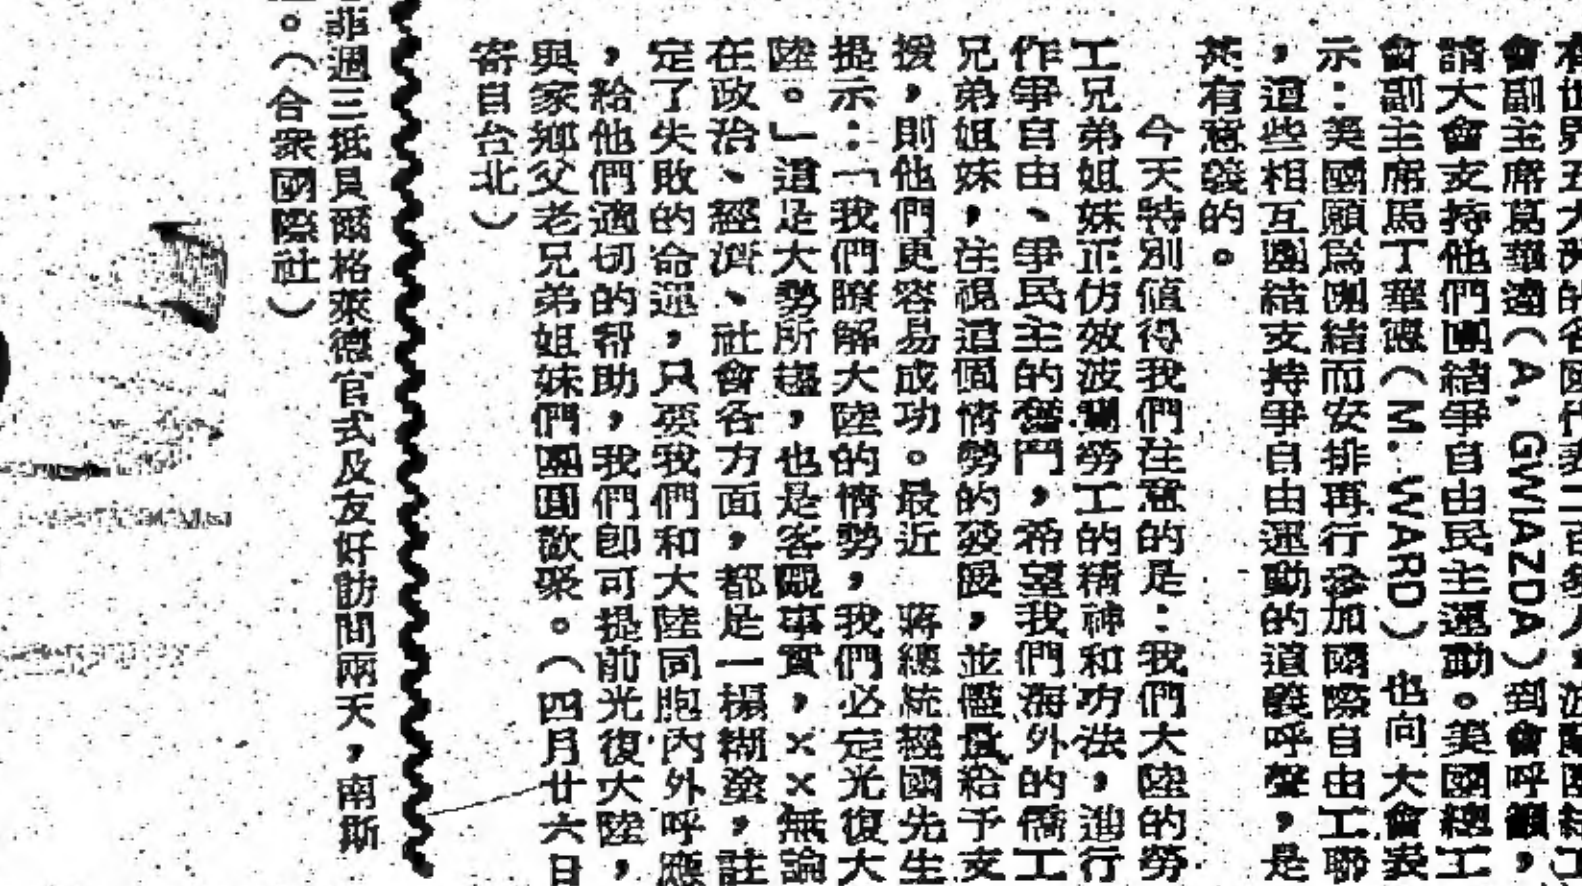 會副主席葛華達（A. GWIAZDA）到會呼籲，
請大會支持他們團結爭自由民主運動。美國總工
會副主席馬丁華德（M. WARD）也向大會表
示：美國願為團結而安排再行參加國際自由工聯
，這些相互團結支持爭自由運動的道義呼聲，是
甚有意義的。
今天特別值得我們注意的是：我們大陸的勞
工兄弟姐妹正仿效波蘭勞工的精神和功法，進行
作爭自由、爭民主的奮鬥，希望我們海外的僑工
兄弟姐妹，注視這個情勢的發展，並儘量給予支
援，則他們更容易成功。最近　蔣總統經國先生
提示：「我們瞭解大陸的情勢，我們必定光復大
陸。」這是大勢所趨，也是客觀事實，××無論
在政治、經濟、社會各方面，都是一塌糊塗，註
定了失敗的命運，只要我們和大陸同胞內外呼應
，給他們適切的幫助，我們即可提前光復大陸，
與家鄉父老兄弟姐妹們團圓歡聚。（四月廿六日
寄自台北）
非週三抵貝爾格萊德官式及友好訪問兩天，南斯
。（合衆國際社）